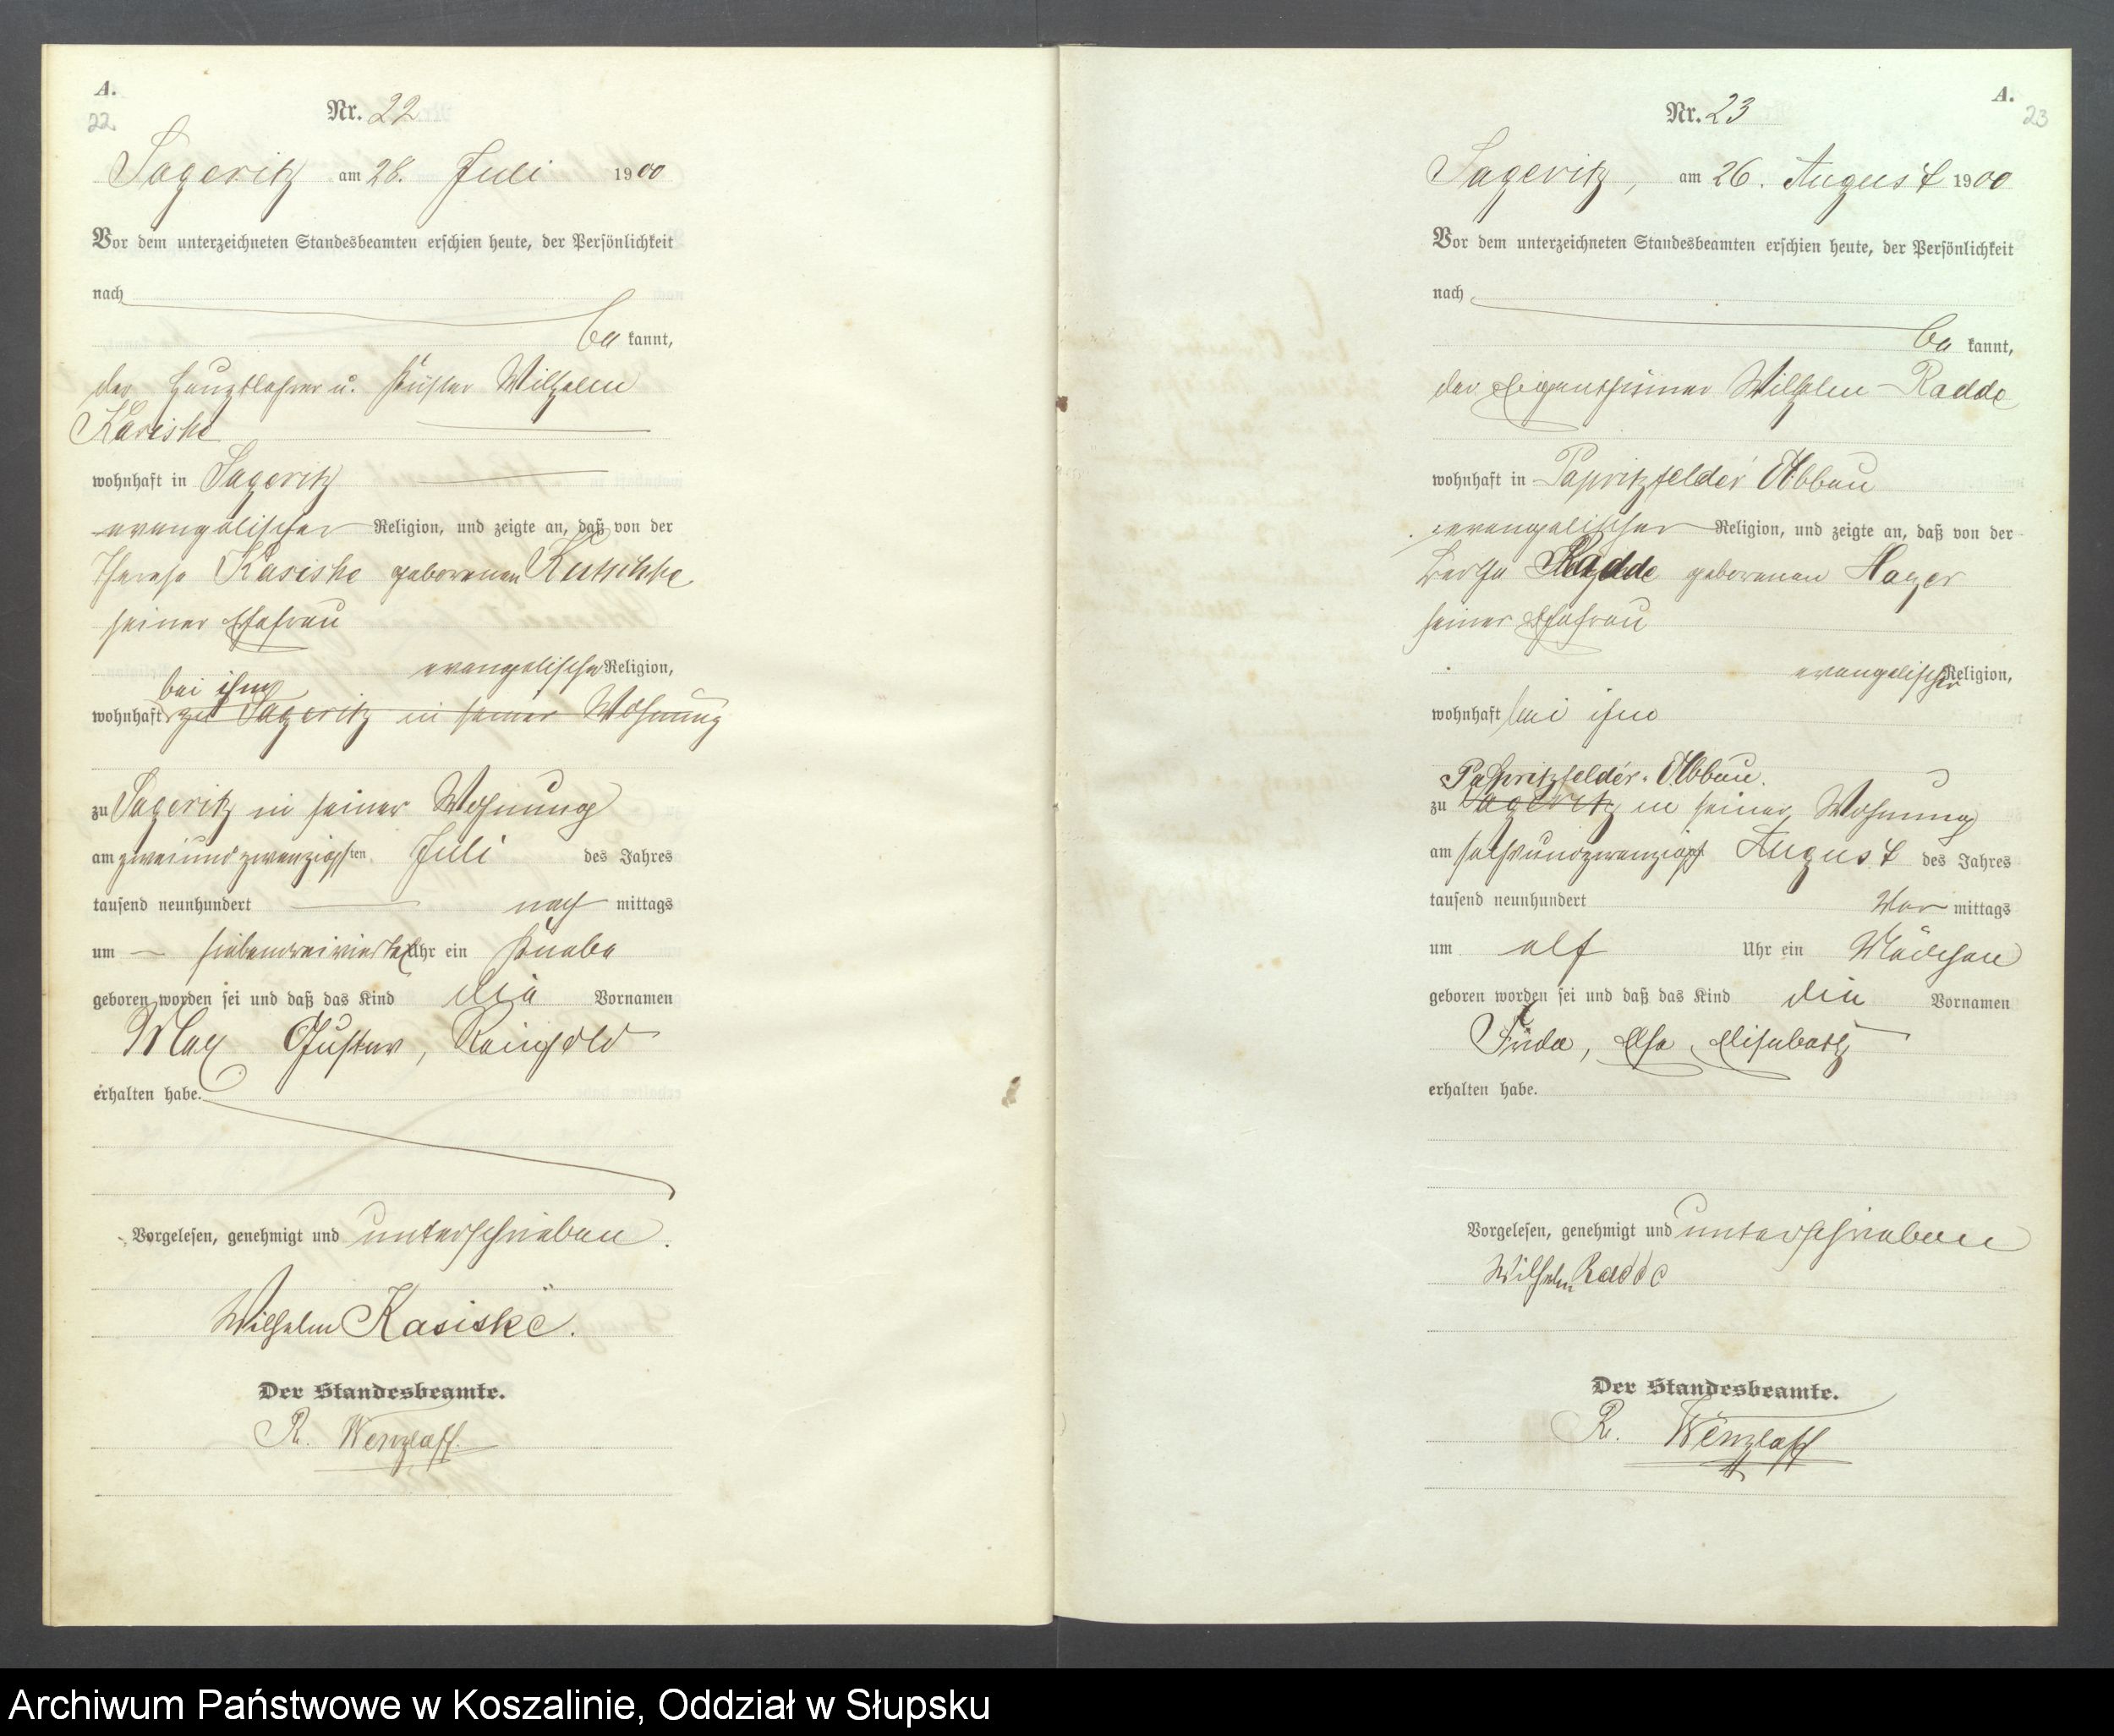 A.
22.
Nr. 22
Sageritz am 28. Juli 1900
Vor dem unterzeichneten Standesbeamten erschien heute, der Persönlichkeit
nach
be kannt,
der Hauptlehrer u. Küster Wilhelm
Kasiske
wohnhaft in Sageritz
evangelischer Religion, und zeigte an, daß von der
Therese Kasiske geborenen Kutschke
seiner Ehefrau
evangelischer Religion,
bei ihm
wohnhaft zu Sageritz in seiner Wohnung
zu Sageritz in seiner Wohnung
am zweiundzwanzigsten Juli des Jahres
tausend neunhundert nach mittags
um siebendreiviertel Uhr ein Knabe
geboren worden sei und daß das Kind die Vornamen
Max Gustav, Reinhold
erhalten habe.
Vorgelesen, genehmigt und unterschrieben.
Wilhelm Kasiske.
Der Standesbeamte.
R. Wenzlaff
A.
23
Nr. 23
Sageritz, am 26. August 1900
Vor dem unterzeichneten Standesbeamten erschien heute, der Persönlichkeit
nach
be kannt,
der Eigenthümer Wilhelm Radde
wohnhaft in Papritzfelder Abbau
evangelischer Religion, und zeigte an, daß von der
Bertha Radde geborenen Hager
seiner Ehefrau
evangelischer Religion,
wohnhaft bei ihm
Papritzfelder Abbau.
zu Sageritz in seiner Wohnung
am sechsundzwanzigst August des Jahres
tausend neunhundert Vor mittags
um elf Uhr ein Mädchen
geboren worden sei und daß das Kind die Vornamen
Frida, Elsa, Elisabeth
erhalten habe.
Vorgelesen, genehmigt und unterschrieben
Wilhelm Radde
Der Standesbeamte.
R. Wenzlaff
Archiwum Państwowe w Koszalinie, Oddział w Słupsku